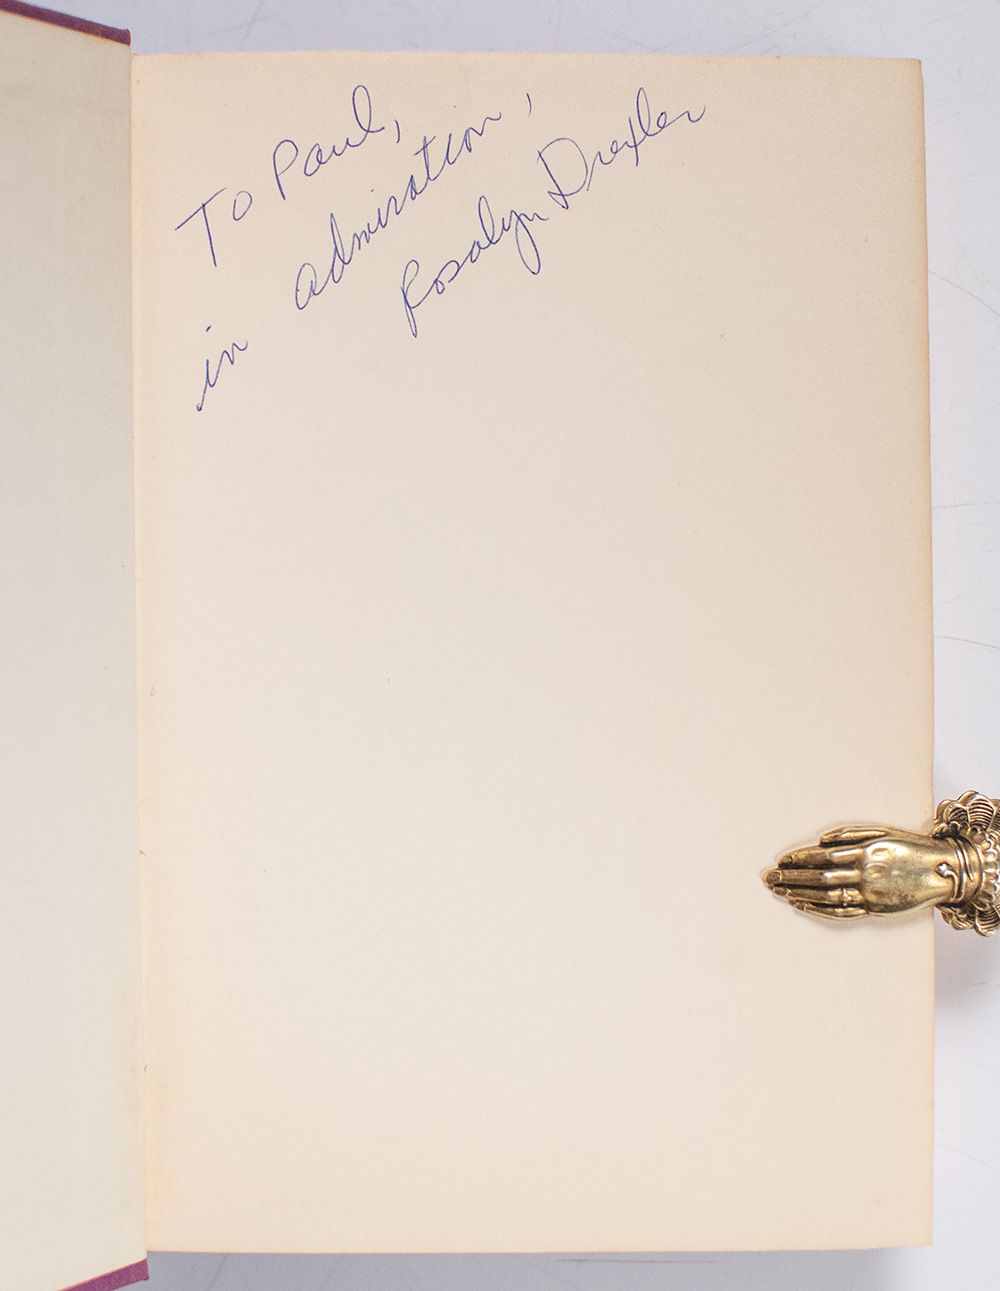 To Paul,
in admiration,
Rosalyn Drexler